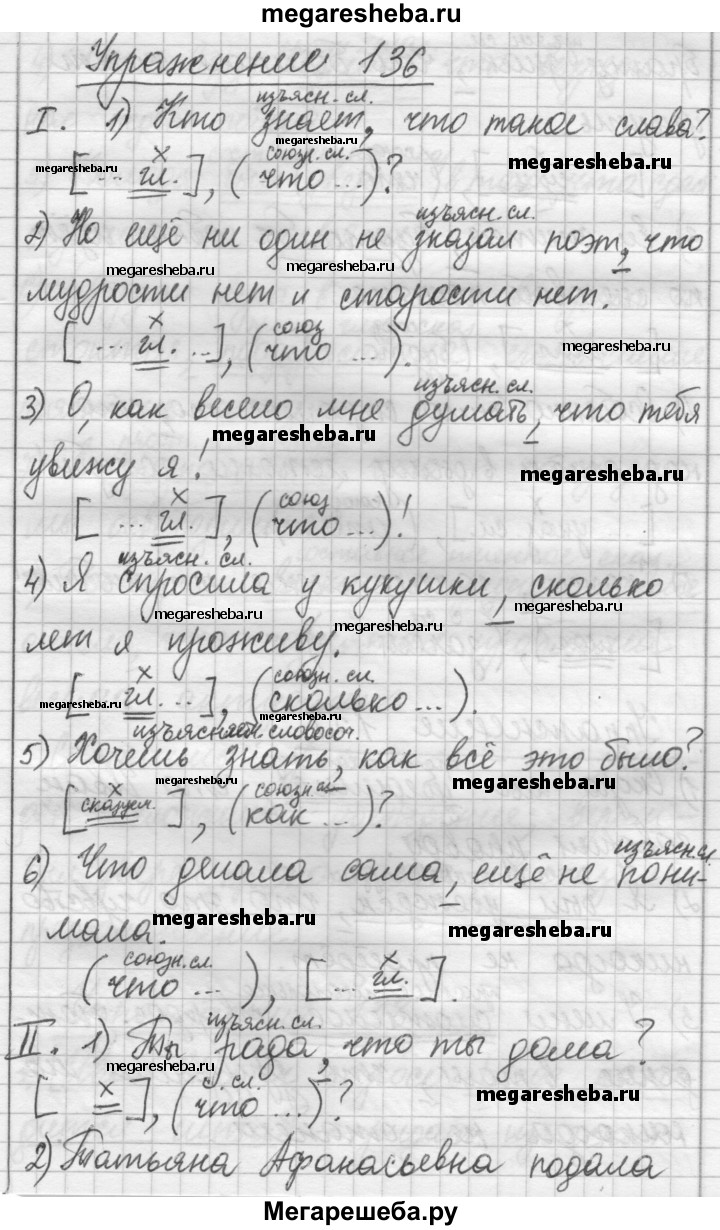 megaresheba.ru
Упражнение 136
изъясн. сл.
I. 1) Кто знает, что такое слава?
megaresheba.ru
х союзн. сл. megaresheba.ru
[... гл. ], (что ...)?
megaresheba.ru
изъясн. сл.
2) Но ещё ни один не сказал поэт, что
megaresheba.ru megaresheba.ru
мудрости нет и старости нет.
х союз
[... гл. ...], (что ...). megaresheba.ru
изъясн. сл.
3) О, как весело мне думать, что тебя
megaresheba.ru
увижу я! megaresheba.ru
х союз
[... гл. ], (что ...)!
изъясн. сл.
4) Я спросила у кукушки, сколько
megaresheba.ru megaresheba.ru
лет я проживу. megaresheba.ru
х союзн. сл.
[ гл. ... ], (сколько ...).
megaresheba.ru megaresheba.ru
изъясняем. словосоч.
5) Хочешь знать, как всё это было?
megaresheba.ru megaresheba.ru
х союзн. сл.
[скажуем. ], (как ...)?
изъясн. сл.
6) Что делала сама, ещё не пони-
megaresheba.ru
мала. megaresheba.ru
союзн. сл. х
(что ... ), [... гл. ].
изъясн. сл.
II. 1) Ты рада, что ты дома?
megaresheba.ru
х с. сл.
[ ], (что ...)? megaresheba.ru
2) Татьяна Афанасьевна подала
megaresheba.ru megaresheba.ru
Мегарешеба.ру